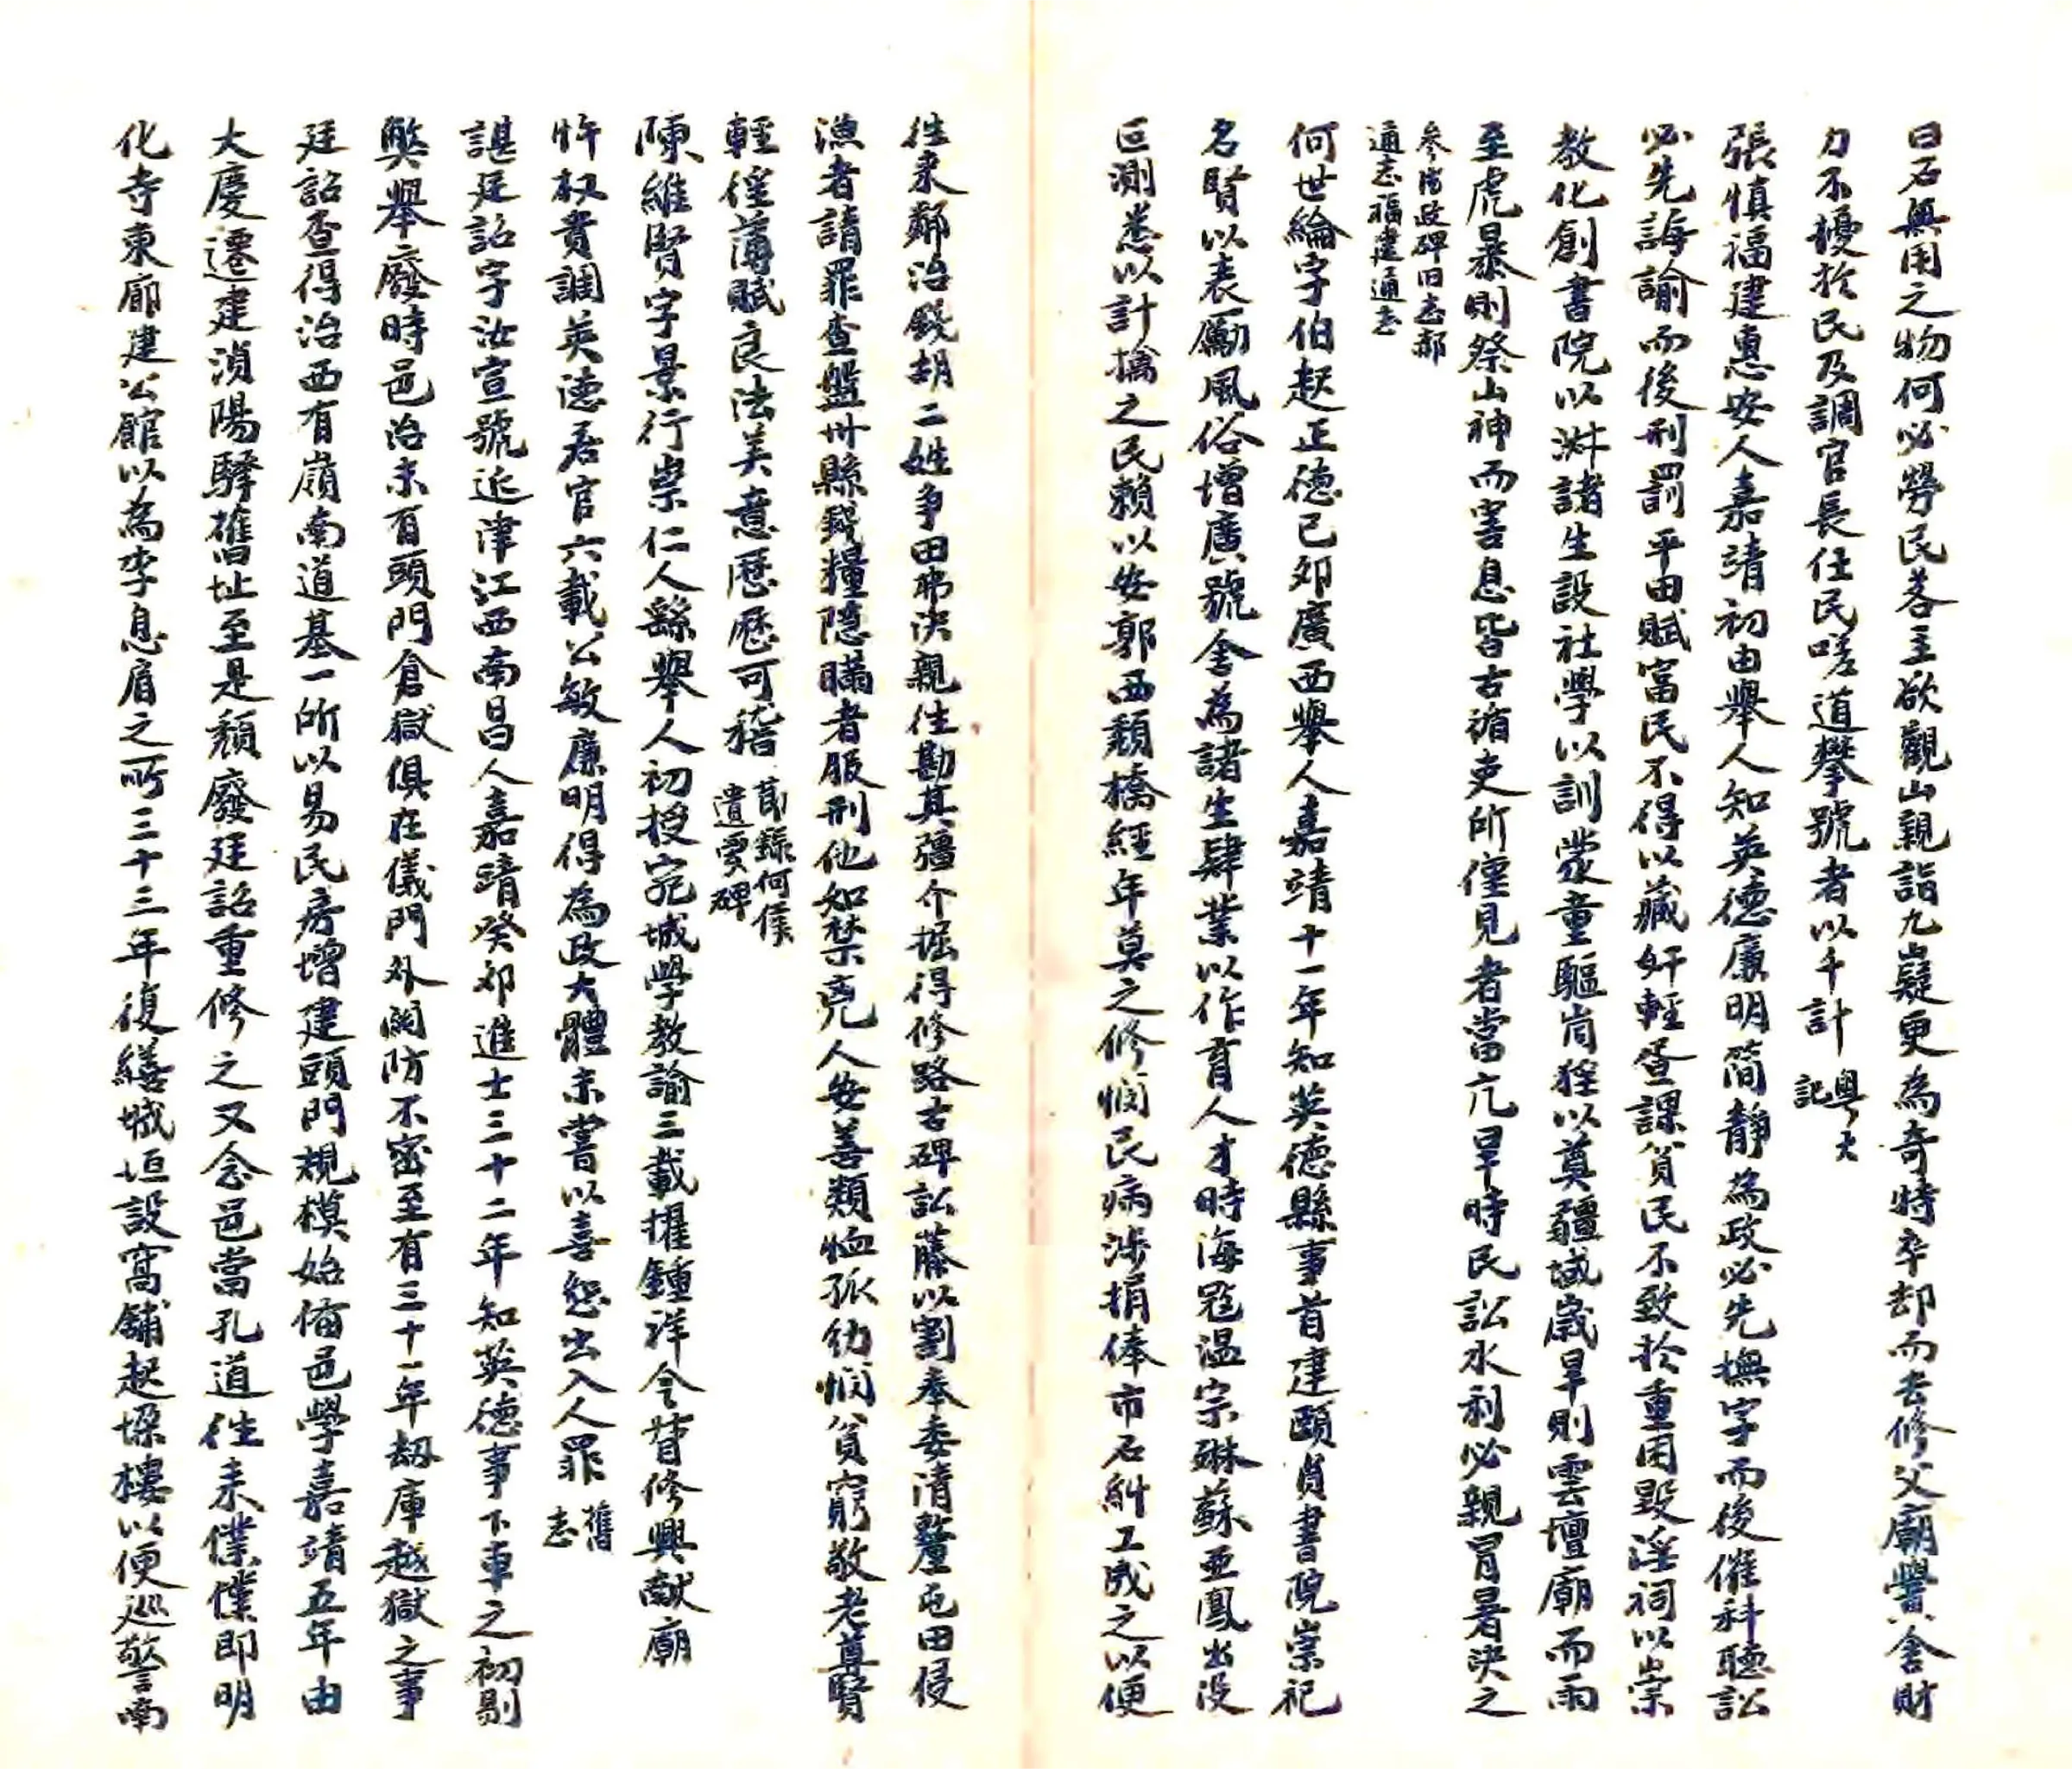 曰石無用之物何必勞民若主欲觀山親詣九嶷更為奇特卒却而去修文廟黌舍財
力不擾於民及調官長任民嗟道攀號者以千計粵大記
張慎福建惠安人嘉靖初由舉人知英德廉明简靜為政必先撫字而後催科聽訟
必先誨諭而後刑罰平田賦富民不得以藏奸輕垦課貧民不致於重困毀淫祠以崇
教化創書院以淑諸生設社學以訓蒙童驅峝猺以奠疆域歲旱則雲壇廟而雨
至虎暴則祭山神而害息皆古循吏所僅見者當亢旱時民訟水利必親冒暑決之
參清政碑旧志郝
通志福建通志
何世綸字伯起正德己卯廣西舉人嘉靖十一年知英德縣事首建頤貞書院崇祀
名賢以表勵風俗增廣號舍為諸生肄業以作育人才時海寇温宗琳蘇亜鳳出没
叵測悉以計擒之民賴以安郭西頹橋經年莫之修憫民病涉捐俸市石糾工成之以便
徃来鄰治錢胡二姓争田弗决親徃勘其彊个掘得修路古碑訟藤以割奉委清釐屯田侵
漁者請罪查盤卅縣錢糧隠瞞者服刑他如禁兇人安善類恤孤幼憫貧窮敬老尊賢
輕徭薄賦良法美意歴歴可稽節錄何侯遺愛碑
陳維賢字景行崇仁人繇舉人初授宛城學教諭三載擢鍾祥令督修興献廟
忤权貴調英德居官六載公敏廉明得為政大體未嘗以喜怒出入人罪舊志
諶廷詔字汝宣號近津江西南昌人嘉靖癸卯進士三十二年知英德事下車之初剔
獘舉廢時邑治未有頭門倉獄俱在儀門外関防不密至有三十一年刼庫越獄之事
廷詔查得治西有嶺南道基一所以易民房增建頭門規模始俻邑學嘉靖五年由
大慶遷建湞陽驛舊址至是頹廢廷詔重修之又念邑當孔道徃来僕僕即明
化寺東廊建公館以為李息肩之所三十三年復繕城垣設窩舖起垛樓以便巡警南